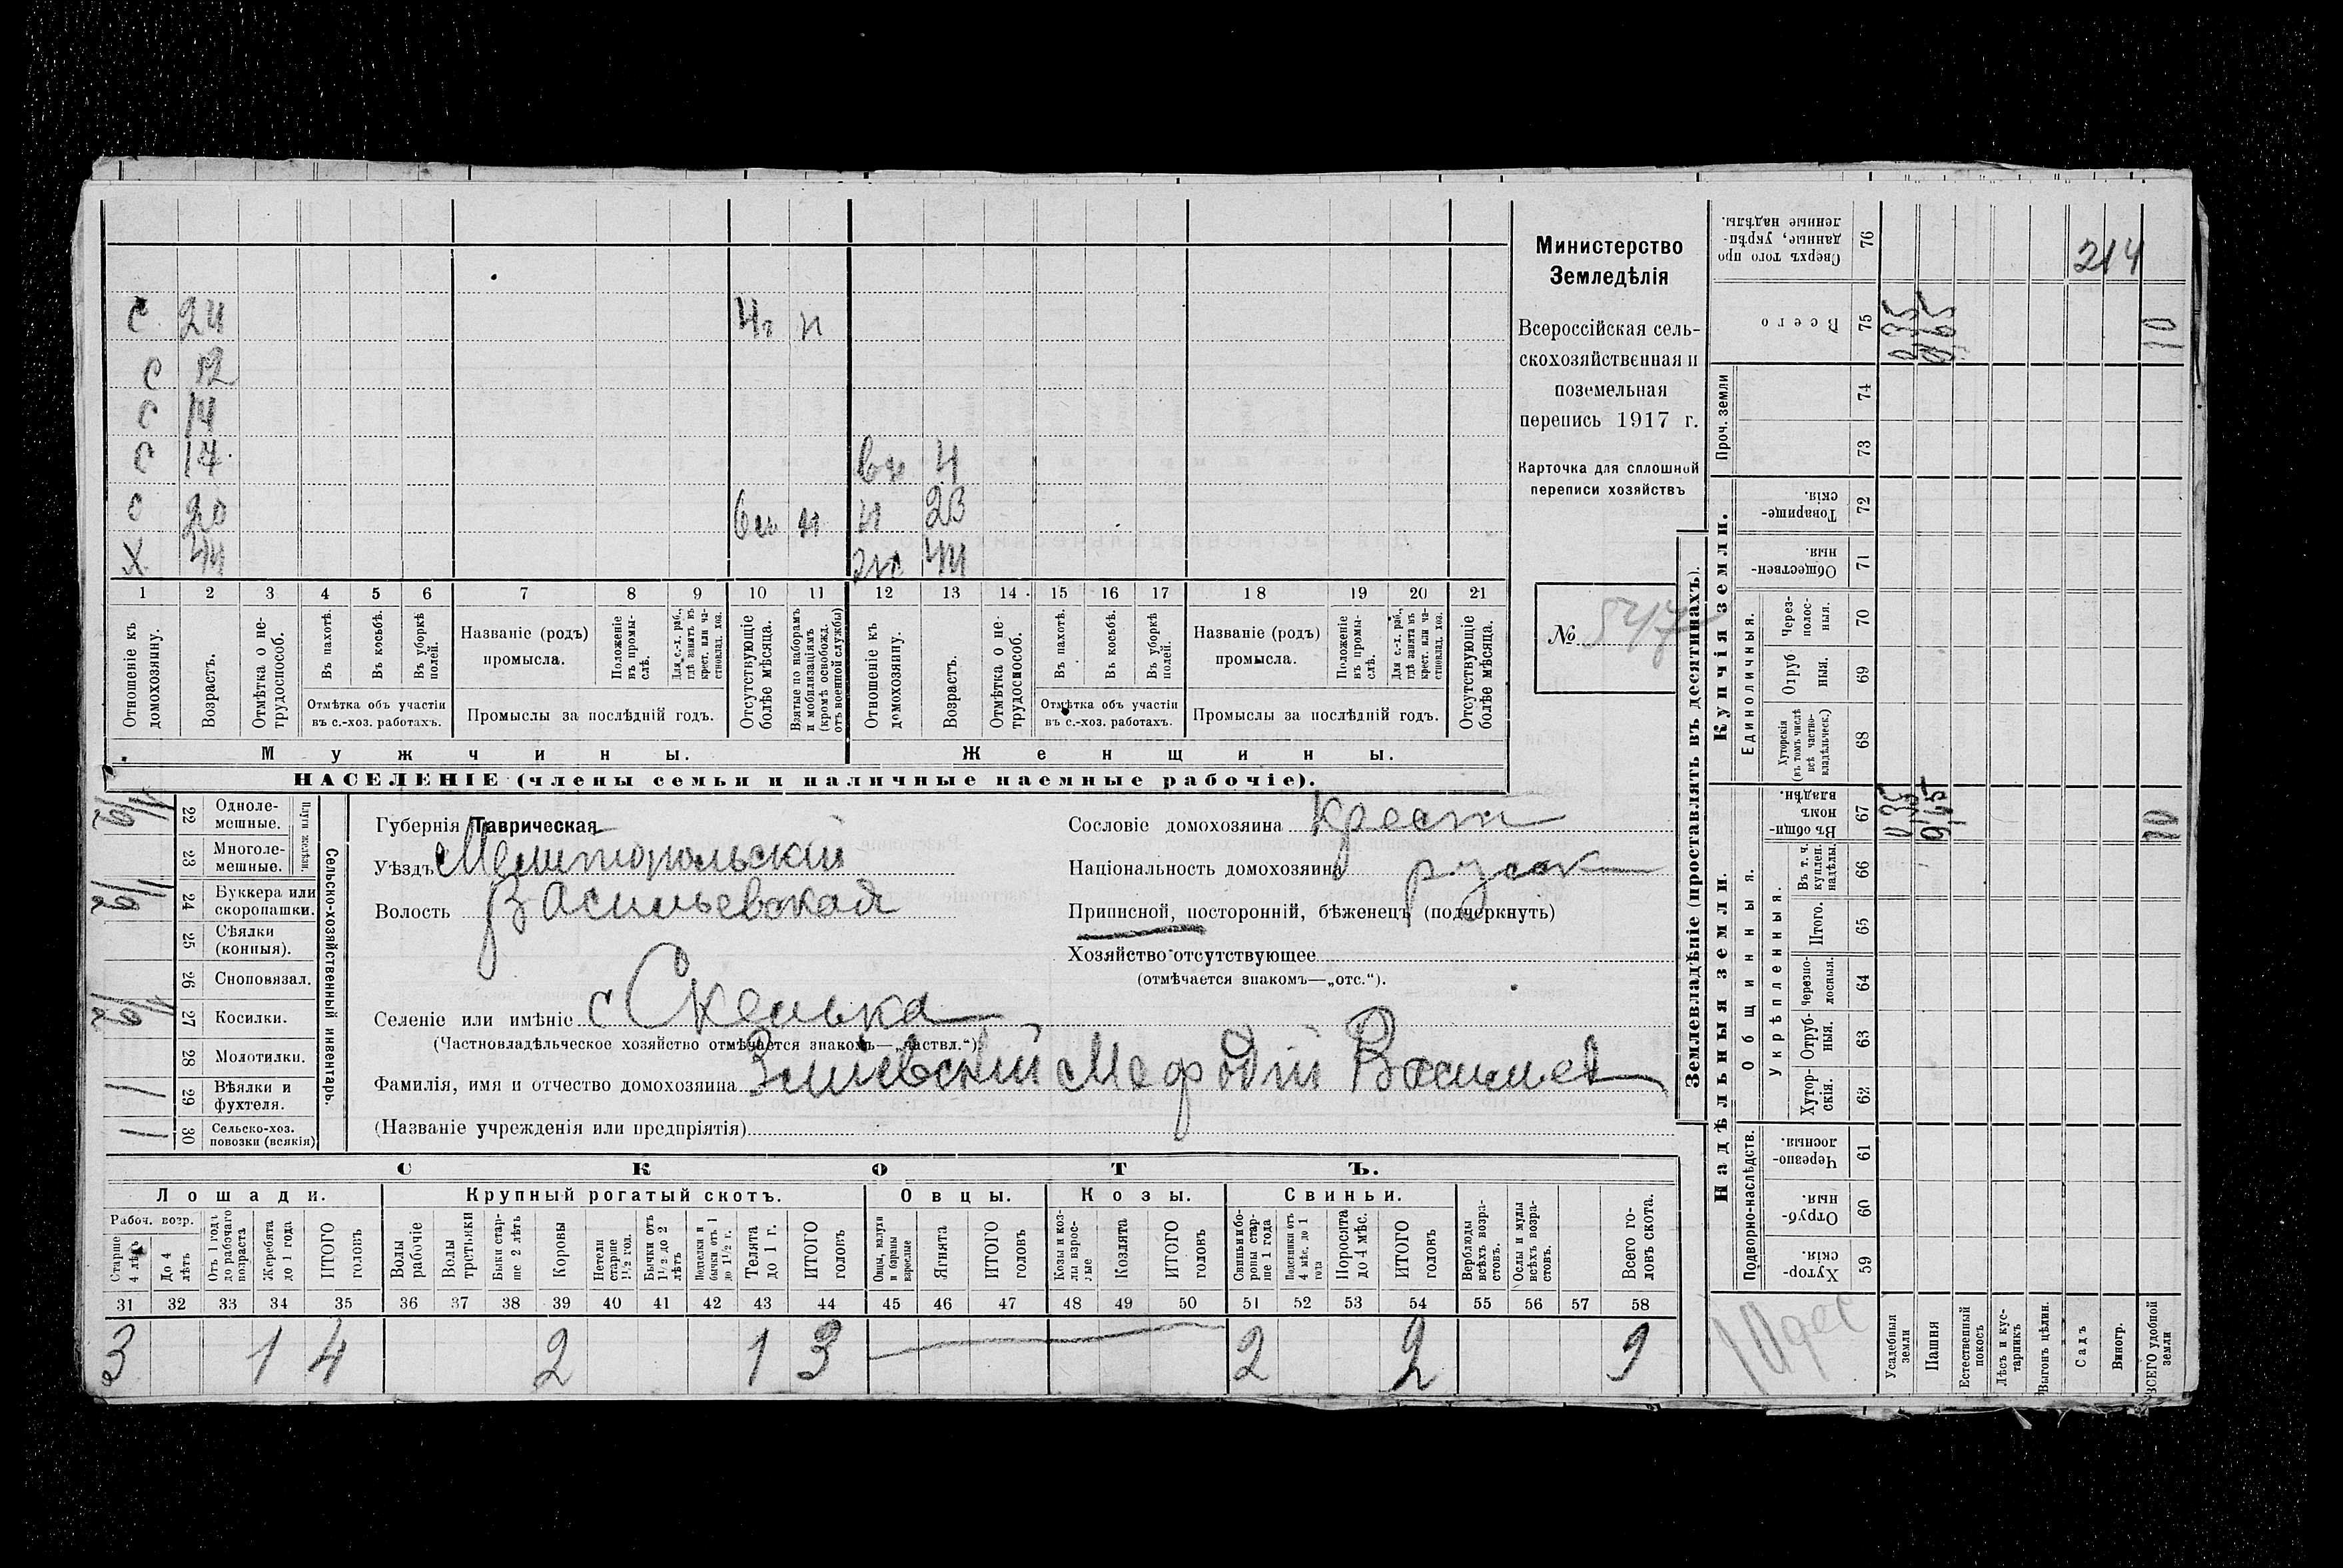 С 24 4 г н
С 12
С 14
С 17 вн 4
С 20 6 м н н 23
Х 44 ж 44
1 2 3 4 5 6 7 8 9 10 11 12 13 14 15 16 17 18 19 20 21
Отношеніе къ домохозяину.
Возрастъ.
Отмѣтка о нетрудоспособ.
Въ пахотѣ.
Въ косьбѣ.
Въ уборкѣ полей.
Отмѣтка объ участіи въ с.-хоз. работахъ.
Названіе (родъ) промысла.
Положеніе въ промыслѣ.
Для с.-х. раб., гдѣ занятъ въ крест. или частновлад. хоз.
Промыслы за послѣдній годъ.
Отсутствующіе болѣе мѣсяца.
Взятые по наборамъ и мобилизаціямъ (кромѣ освобожд. отъ военной службы)
Отношеніе къ домохозяину.
Возрастъ.
Отмѣтка о нетрудоспособ.
Въ пахотѣ.
Въ косьбѣ.
Въ уборкѣ полей.
Отмѣтка объ участіи въ с.-хоз. работахъ.
Названіе (родъ) промысла.
Положеніе въ промыслѣ.
Для с.-х. раб., гдѣ занята въ крест. или частновлад. хоз.
Промыслы за послѣдній годъ.
Отсутствующіе болѣе мѣсяца.
Мужчины.
Женщины.
НАСЕЛЕНІЕ (члены семьи и наличные наемные рабочіе).
Министерство
Земледѣлія
Всероссійская сель-
скохозяйственная и
поземельная
перепись 1917 г.
Карточка для сплошной
переписи хозяйствъ
№ 547
Сельско-хозяйственный инвентарь.
Плуги желѣзн.
22 Одноле-
мешные.
23 Многоле-
мешные.
24 Буккера или
скоропашки.
25 Сѣялки
(конныя).
26 Сноповязал.
27 Косилки.
28 Молотилки.
29 Вѣялки и
фухтеля. 1
30 Сельско-хоз.
повозки (всякія) 1
Губернія Таврическая
Уѣздъ Мелитопольскій
Волость Васильевская
Селеніе или имѣніе с Скелька
(Частновладѣльческое хозяйство отмѣчается знакомъ—„частвл.“)
Фамилія, имя и отчество домохозяина Змієвскій Мефодій Васильев
(Названіе учрежденія или предпріятія)
Сословіе домохозяина крест
Національность домохозяина руск
Приписной, посторонній, бѣженецъ (подчеркнуть)
Хозяйство отсутствующее
(отмѣчается знакомъ—„отс.“).
СКОТЪ.
Лошади.
Крупный рогатый скотъ.
Овцы.
Козы.
Свиньи.
Рабоч. возр.
Старше 4 лѣтъ
До 4 лѣтъ
Отъ 1 года до рабочаго возраста
Жеребята до 1 года
ИТОГО головъ
Волы рабочіе
Волы третьяки
Быки старше 2 лѣтъ
Коровы
Нетели старше 1½ год.
Бычки отъ 1½ до 2 лѣтъ
Подтелки и бычки отъ 1 до 1½ г.
Телята до 1 г.
ИТОГО головъ
Овцы, валухи и бараны взрослые
Ягнята
ИТОГО головъ
Козы и козлы взрослые
Козлята
ИТОГО головъ
Свиньи и боровы старше 1 года
Подсвинки отъ 4 мѣс. до 1 года
Поросята до 4 мѣс.
ИТОГО головъ
Верблюды всѣхъ возрастовъ.
Ослы и мулы всѣхъ возрастовъ.
Всего головъ скота.
31 32 33 34 35 36 37 38 39 40 41 42 43 44 45 46 47 48 49 50 51 52 53 54 55 56 57 58
3 1 4 2 1 3 2 2 9
Землевладѣніе (проставлять въ десятинахъ).
Надѣльныя земли.
Купчія земли.
Проч. земли
Подворно-наслѣдств.
Общинныя.
Укрѣпленныя.
Единоличныя.
76 Сверхъ того проданные, укрѣпленные надѣлы.
75 Всего 0,35 9,65 10
74
73
72 Товарищескія.
71 Общественныя.
70 Черезполосныя.
69 Отрубныя.
68 Хуторскія (въ томъ числѣ всѣ частновладѣльческ.)
67 Въ общинномъ владѣн. 0,35 9,65 10
66 Въ т. ч. куплен. надѣлы.
65 Итого.
64 Черезполосныя.
63 Отрубныя.
62 Хуторскія.
61 Черезполосныя.
60 Отрубныя.
59 Хуторскія.
Усадебныя земли
Пашня
Естественный покосъ
Лѣсъ и кустарникъ
Выгонъ цѣлин.
Садъ
Виногр.
ВСЕГО удобной земли
214